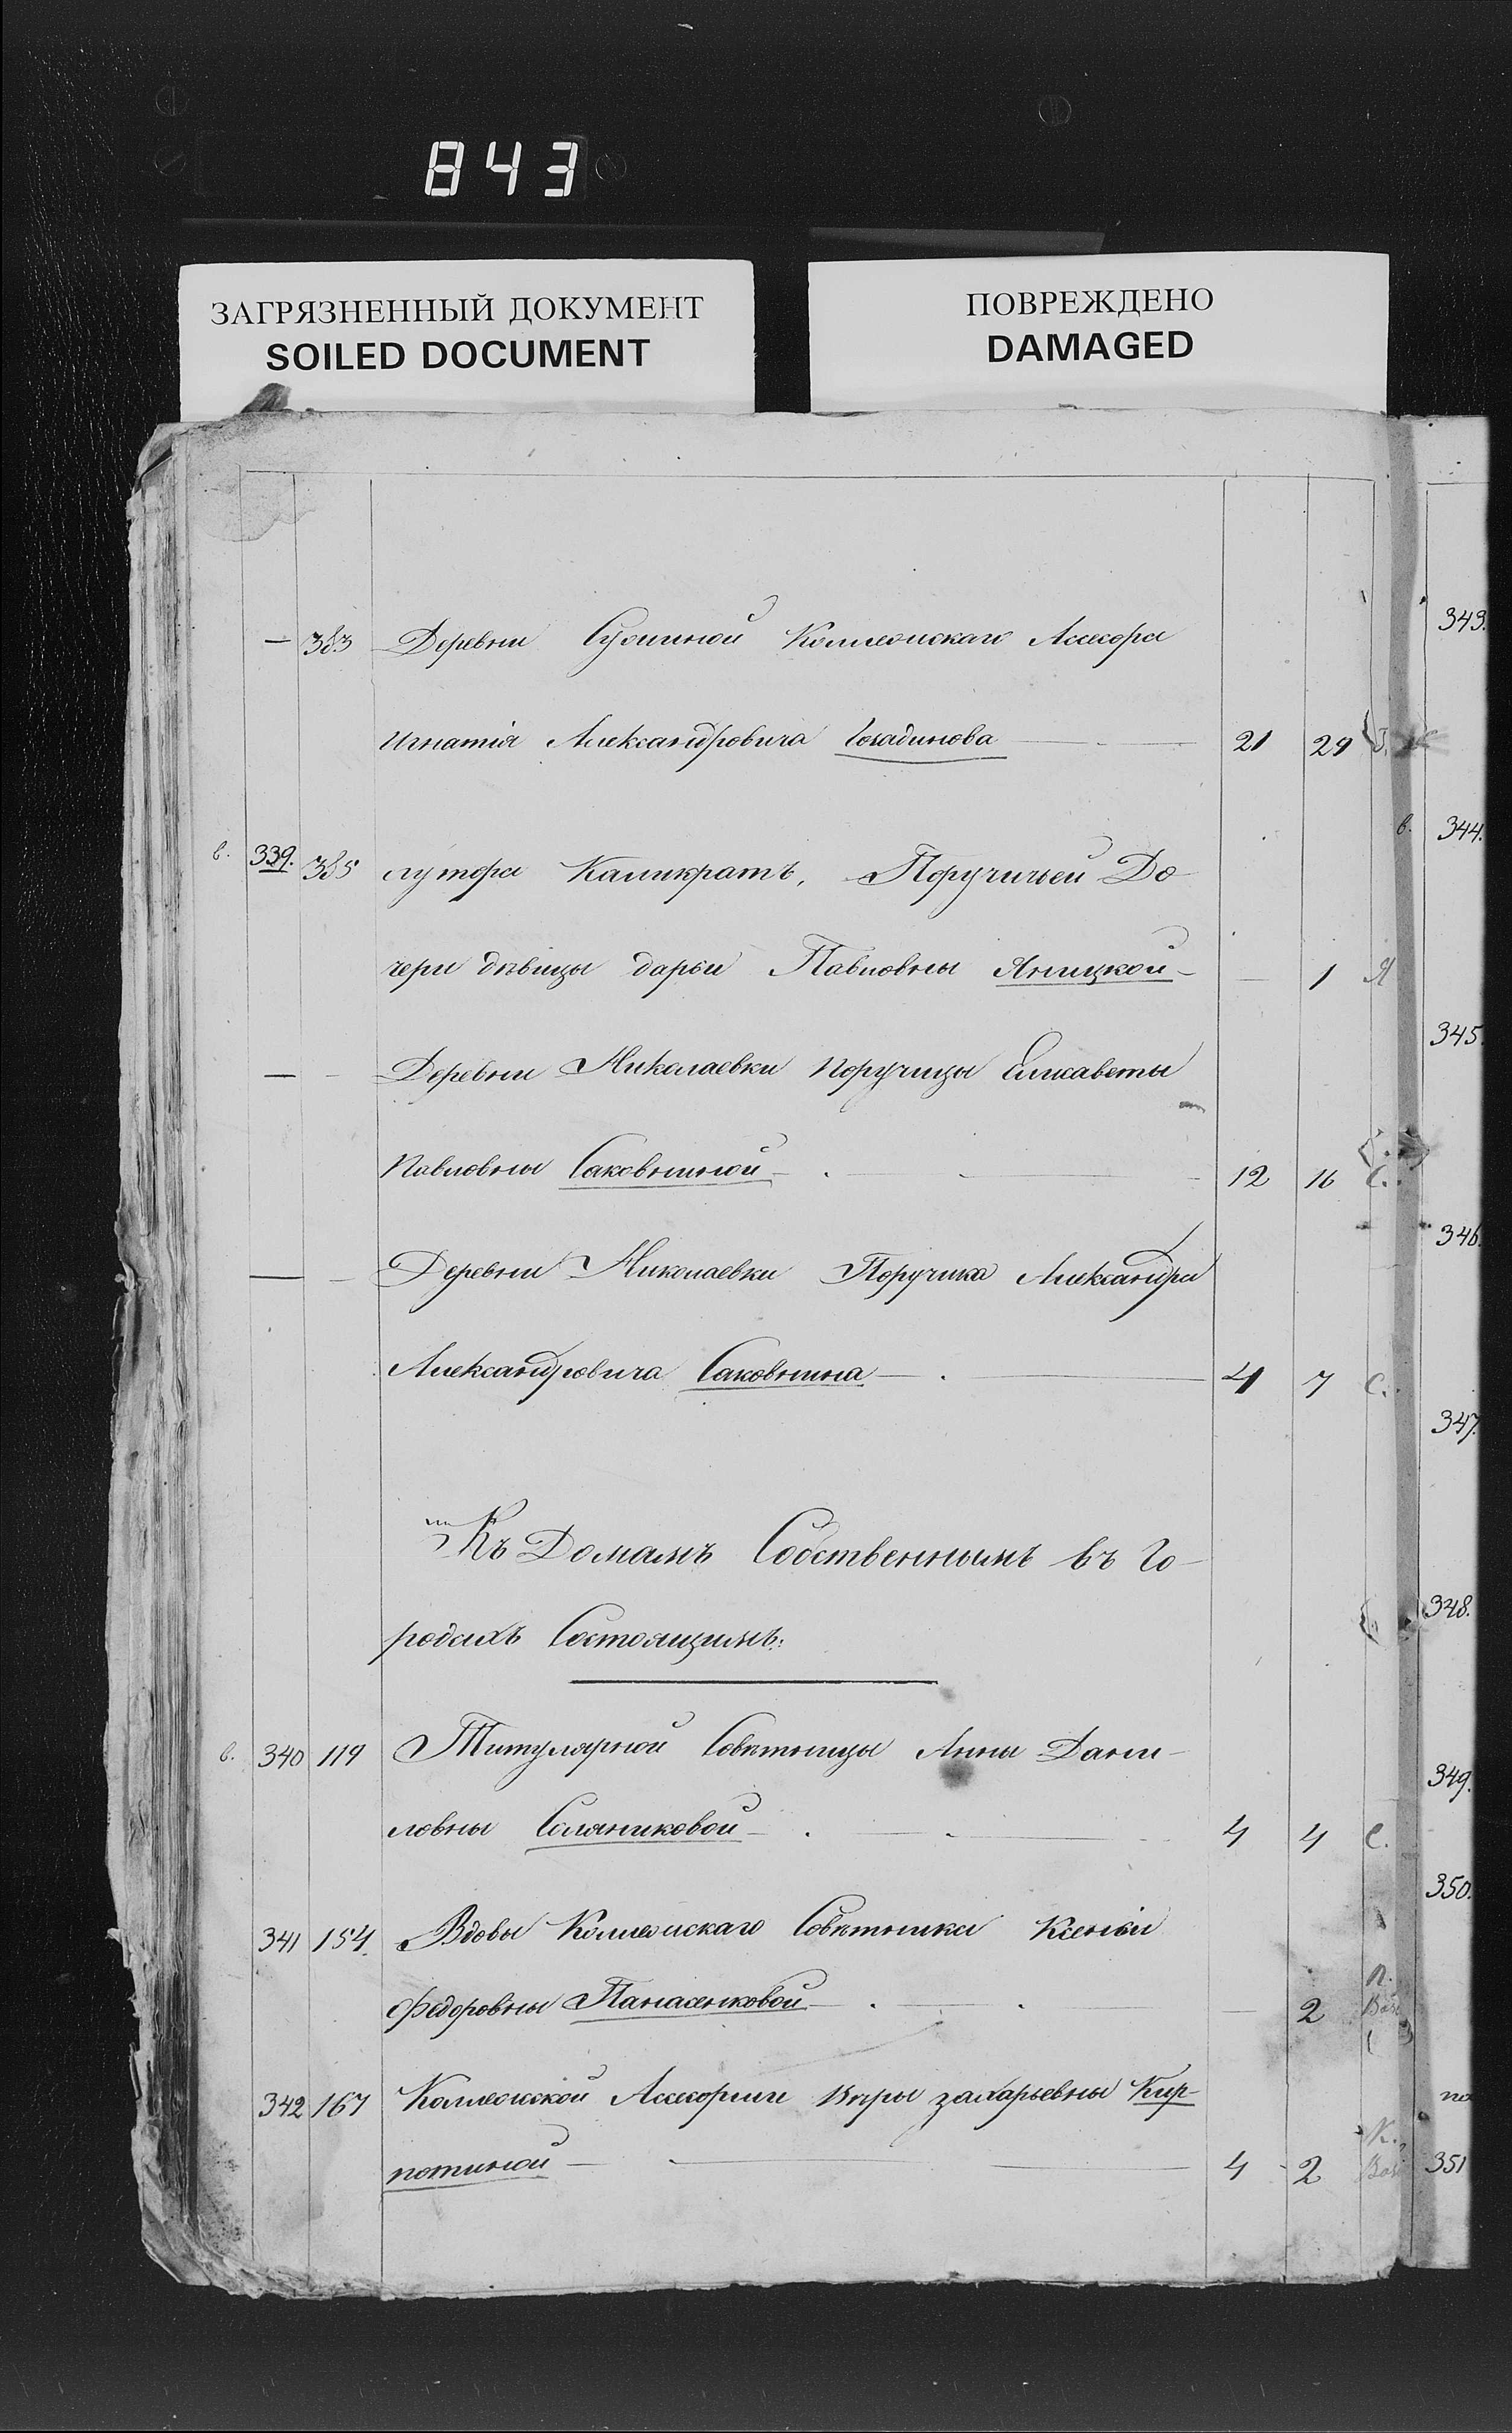 843
ЗАГРЯЗНЕННЫЙ ДОКУМЕНТ
SOILED DOCUMENT
ПОВРЕЖДЕНО
DAMAGED
— 383 Деревни Коллежскаго Асесора
Игнатія Александровича Гозадинова — 21 29 З.
в. 339. 385 хутора Каликратъ, Поручичьей До-
чери дѣвицы дарьи Павловны Яницкой — — 1 Я
— — Деревни Николаевки Поручицы Елисаветы
Павловны Саковниной — 12 16 С.
— — Деревни Николаевки Поручика Александра
Александровича Саковнина — 4 7 С.
Къ Домамъ Собственнымъ въ Го-
родахъ Состоящимъ:
в. 340 119 Титулярной Совѣтницы Анны Дани-
ловны Соляниковой — 4 4 С.
341 154. Вдовы Коллежскаго Совѣтника Ксеніи
Федоровны Панасенковой — — 2 П.
342 167 Коллежской Асесорши Вѣры захарьевны Кир-
потиной — 4 2 К.
343.
в. 344.
345.
346.
347.
348.
349.
350.
по
351